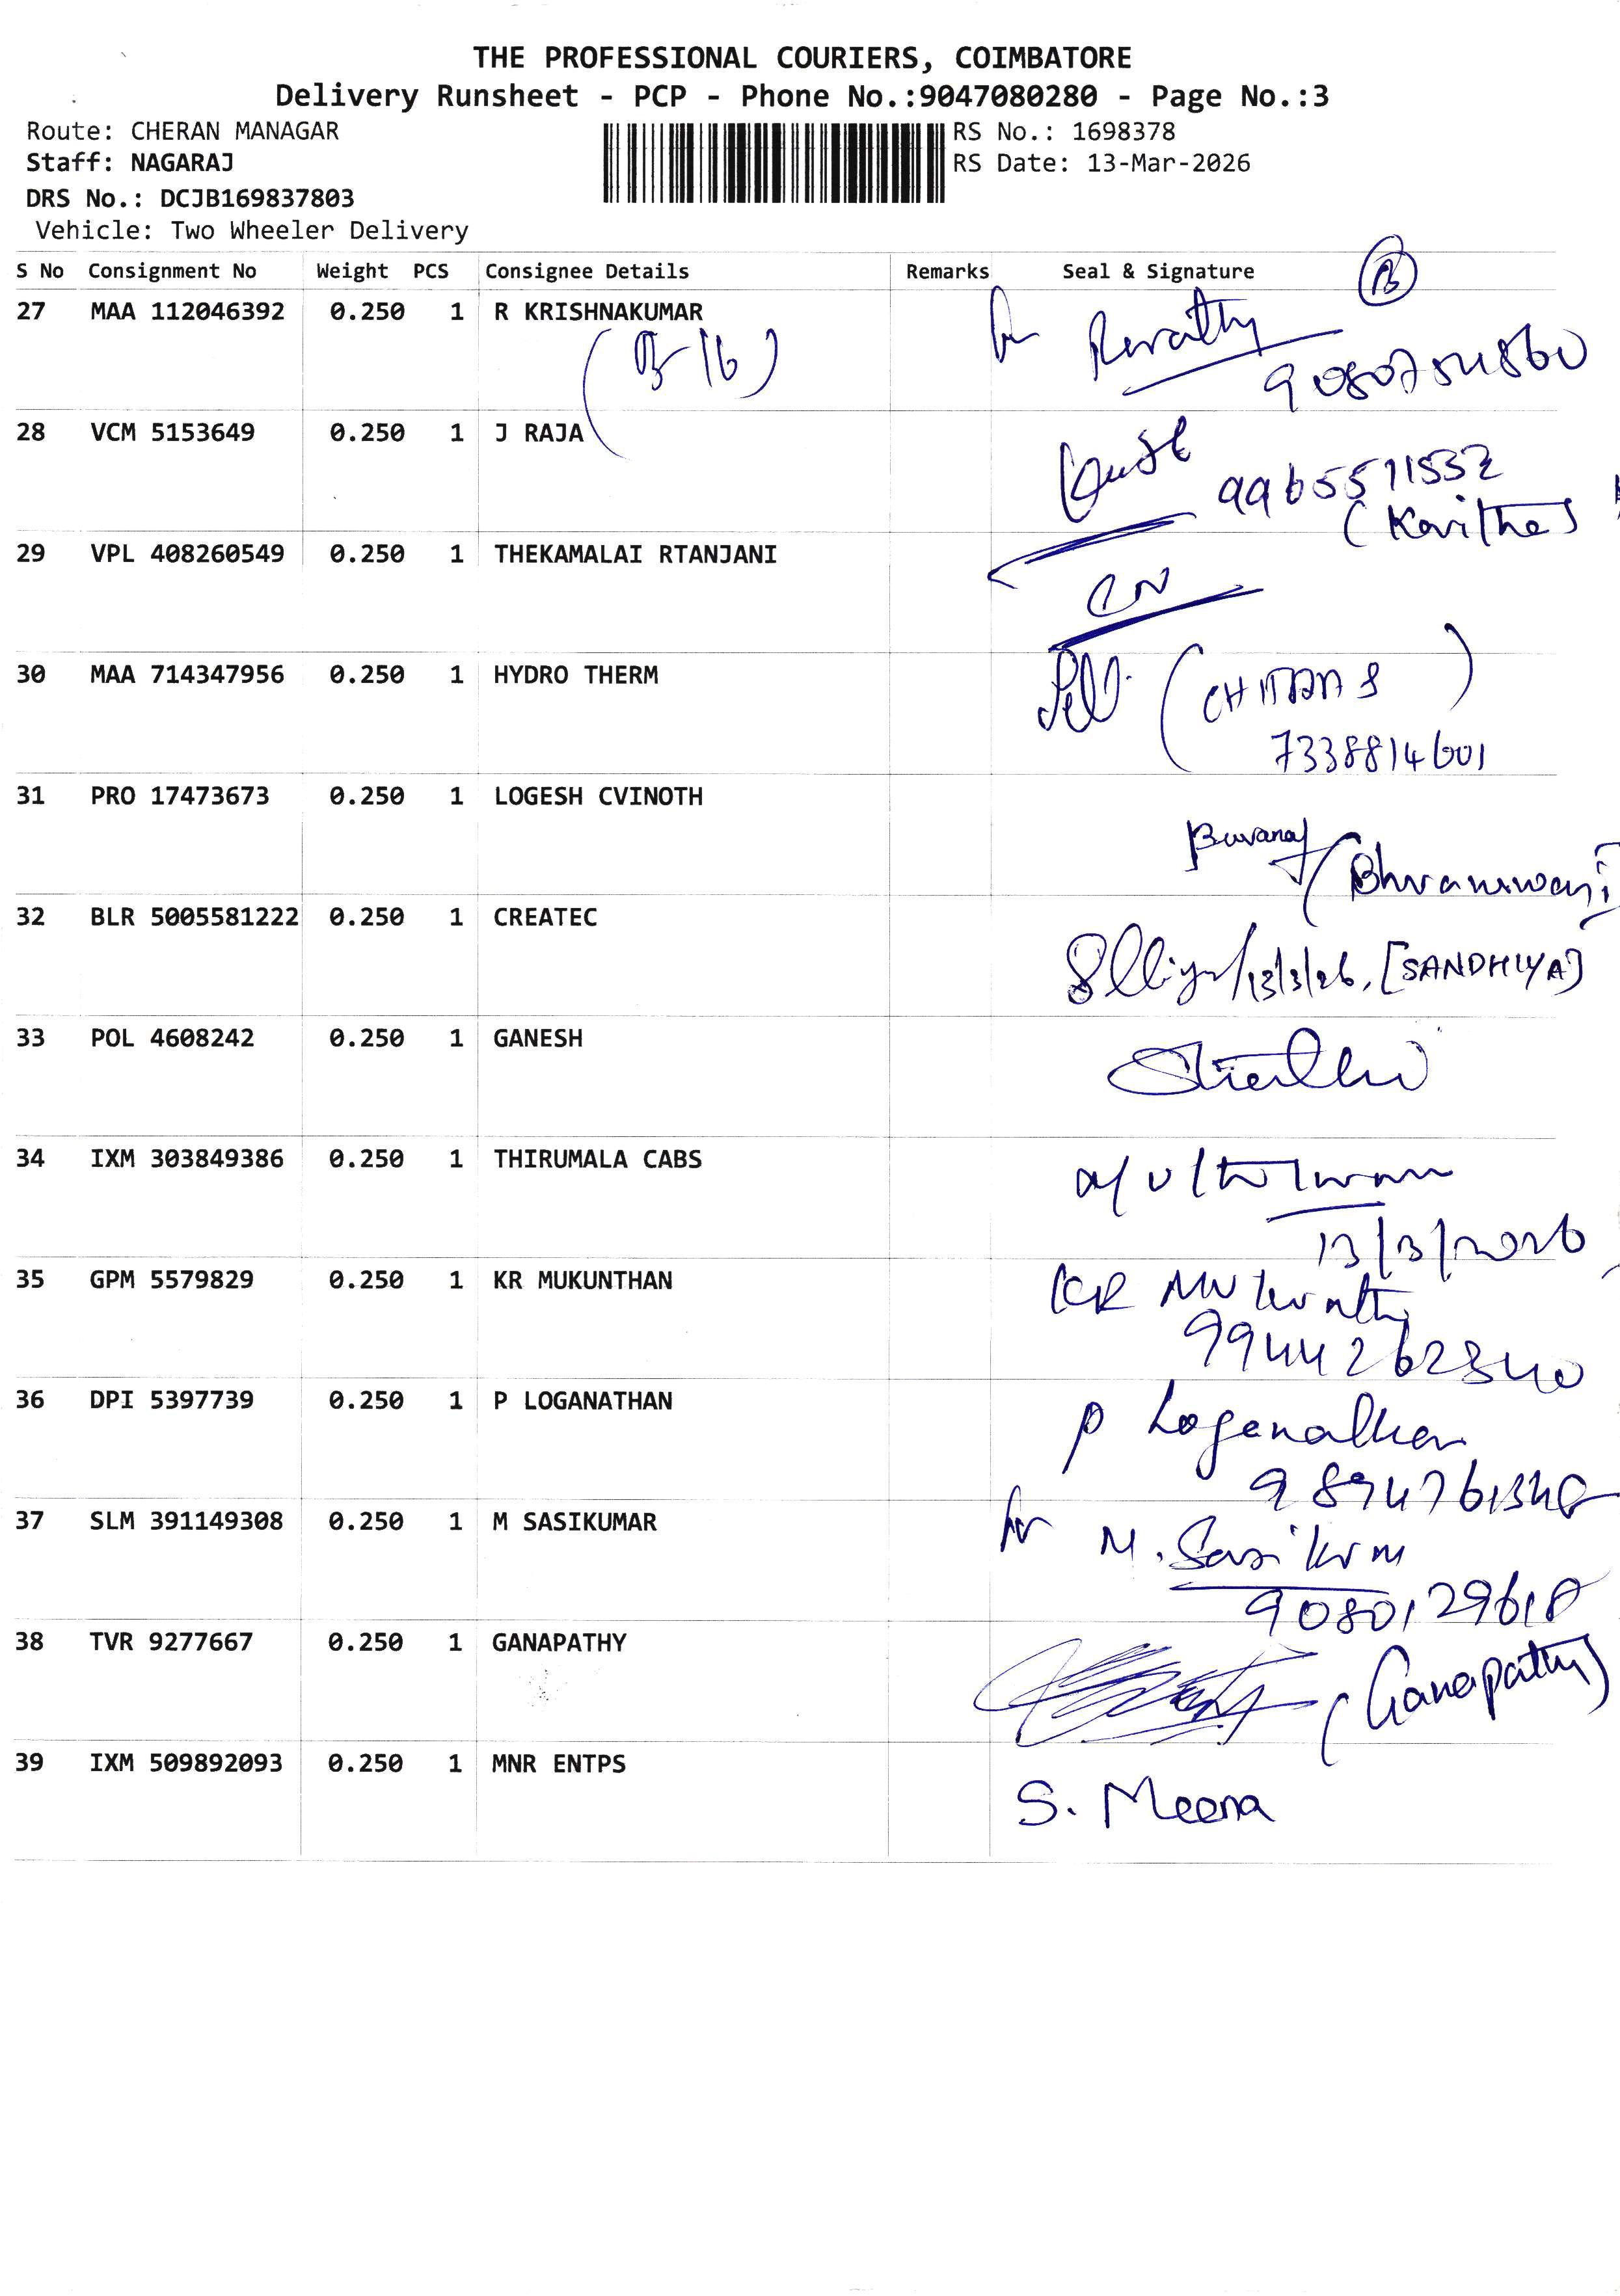 THE PROFESSIONAL COURIERS, COIMBATORE
Delivery Runsheet - PCP - Phone No.:9047080280 - Page No.:3
Route: CHERAN MANAGAR
RS No.: 1698378
Staff: NAGARAJ
RS Date: 13-Mar-2026
DRS No.: DCJB169837803
Vehicle: Two Wheeler Delivery
S No Consignment No Weight PCS Consignee Details Remarks Seal & Signature
27 MAA 112046392 0.250 1 R KRISHNAKUMAR
Revathy
28 VCM 5153649 0.250 1 J RAJA
9965571532
(Kavitha)
29 VPL 408260549 0.250 1 THEKAMALAI RTANJANI
30 MAA 714347956 0.250 1 HYDRO THERM
7338814601
31 PRO 17473673 0.250 1 LOGESH CVINOTH
Buvana
32 BLR 5005581222 0.250 1 CREATEC
13/3/26, [SANDHIYA]
33 POL 4608242 0.250 1 GANESH
34 IXM 303849386 0.250 1 THIRUMALA CABS
13/3/2026
35 GPM 5579829 0.250 1 KR MUKUNTHAN
KR
9944262340
36 DPI 5397739 0.250 1 P LOGANATHAN
P Loganathan
37 SLM 391149308 0.250 1 M SASIKUMAR
M. Sasikum
9080129618
38 TVR 9277667 0.250 1 GANAPATHY
(Ganapathy)
39 IXM 509892093 0.250 1 MNR ENTPS
S. Meena